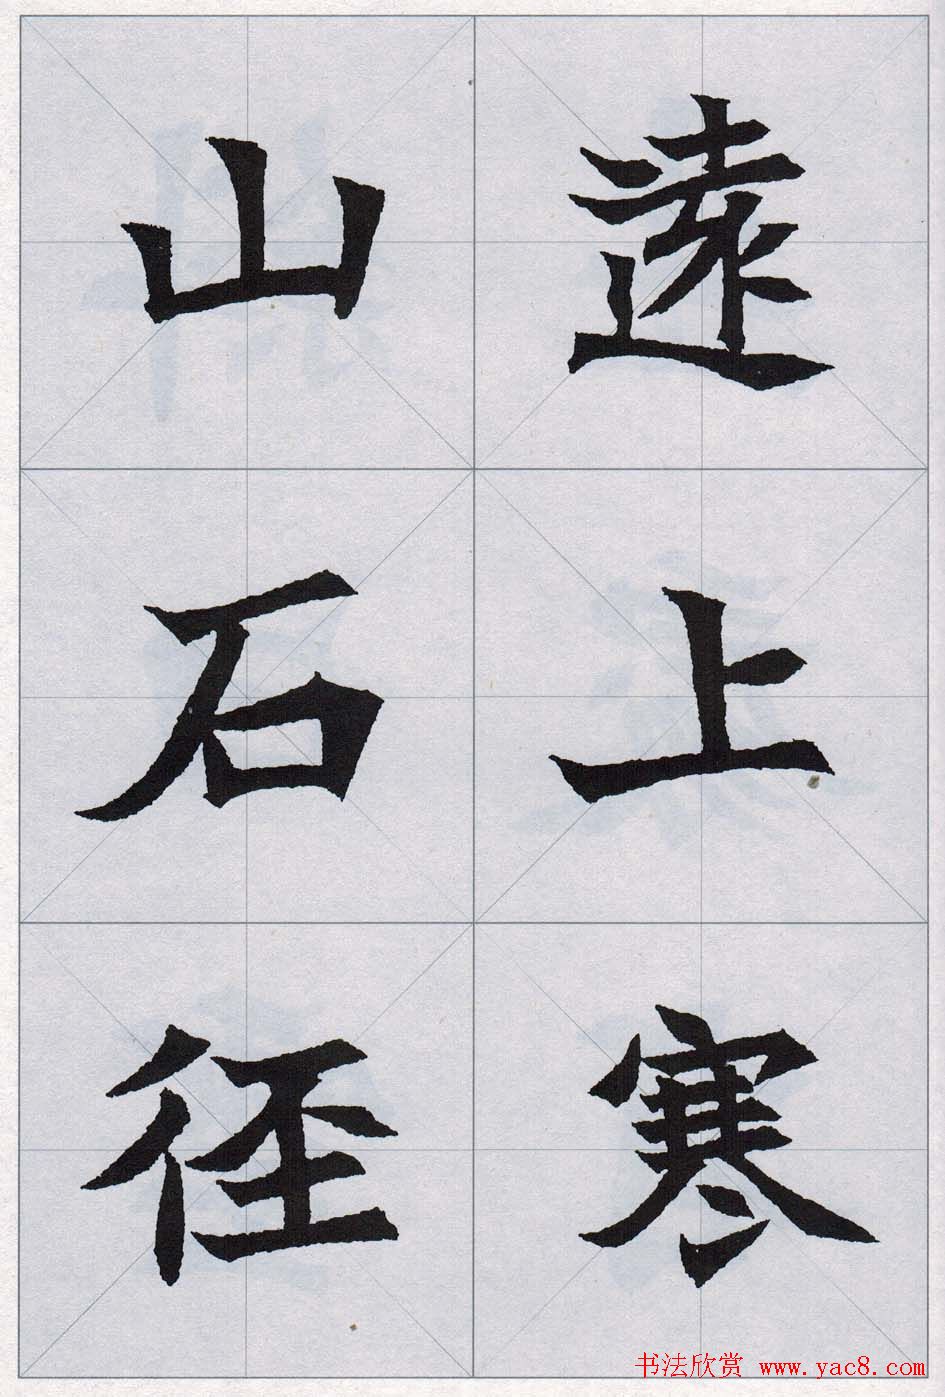 遠上寒
山石径
书法欣赏 www.yac8.com